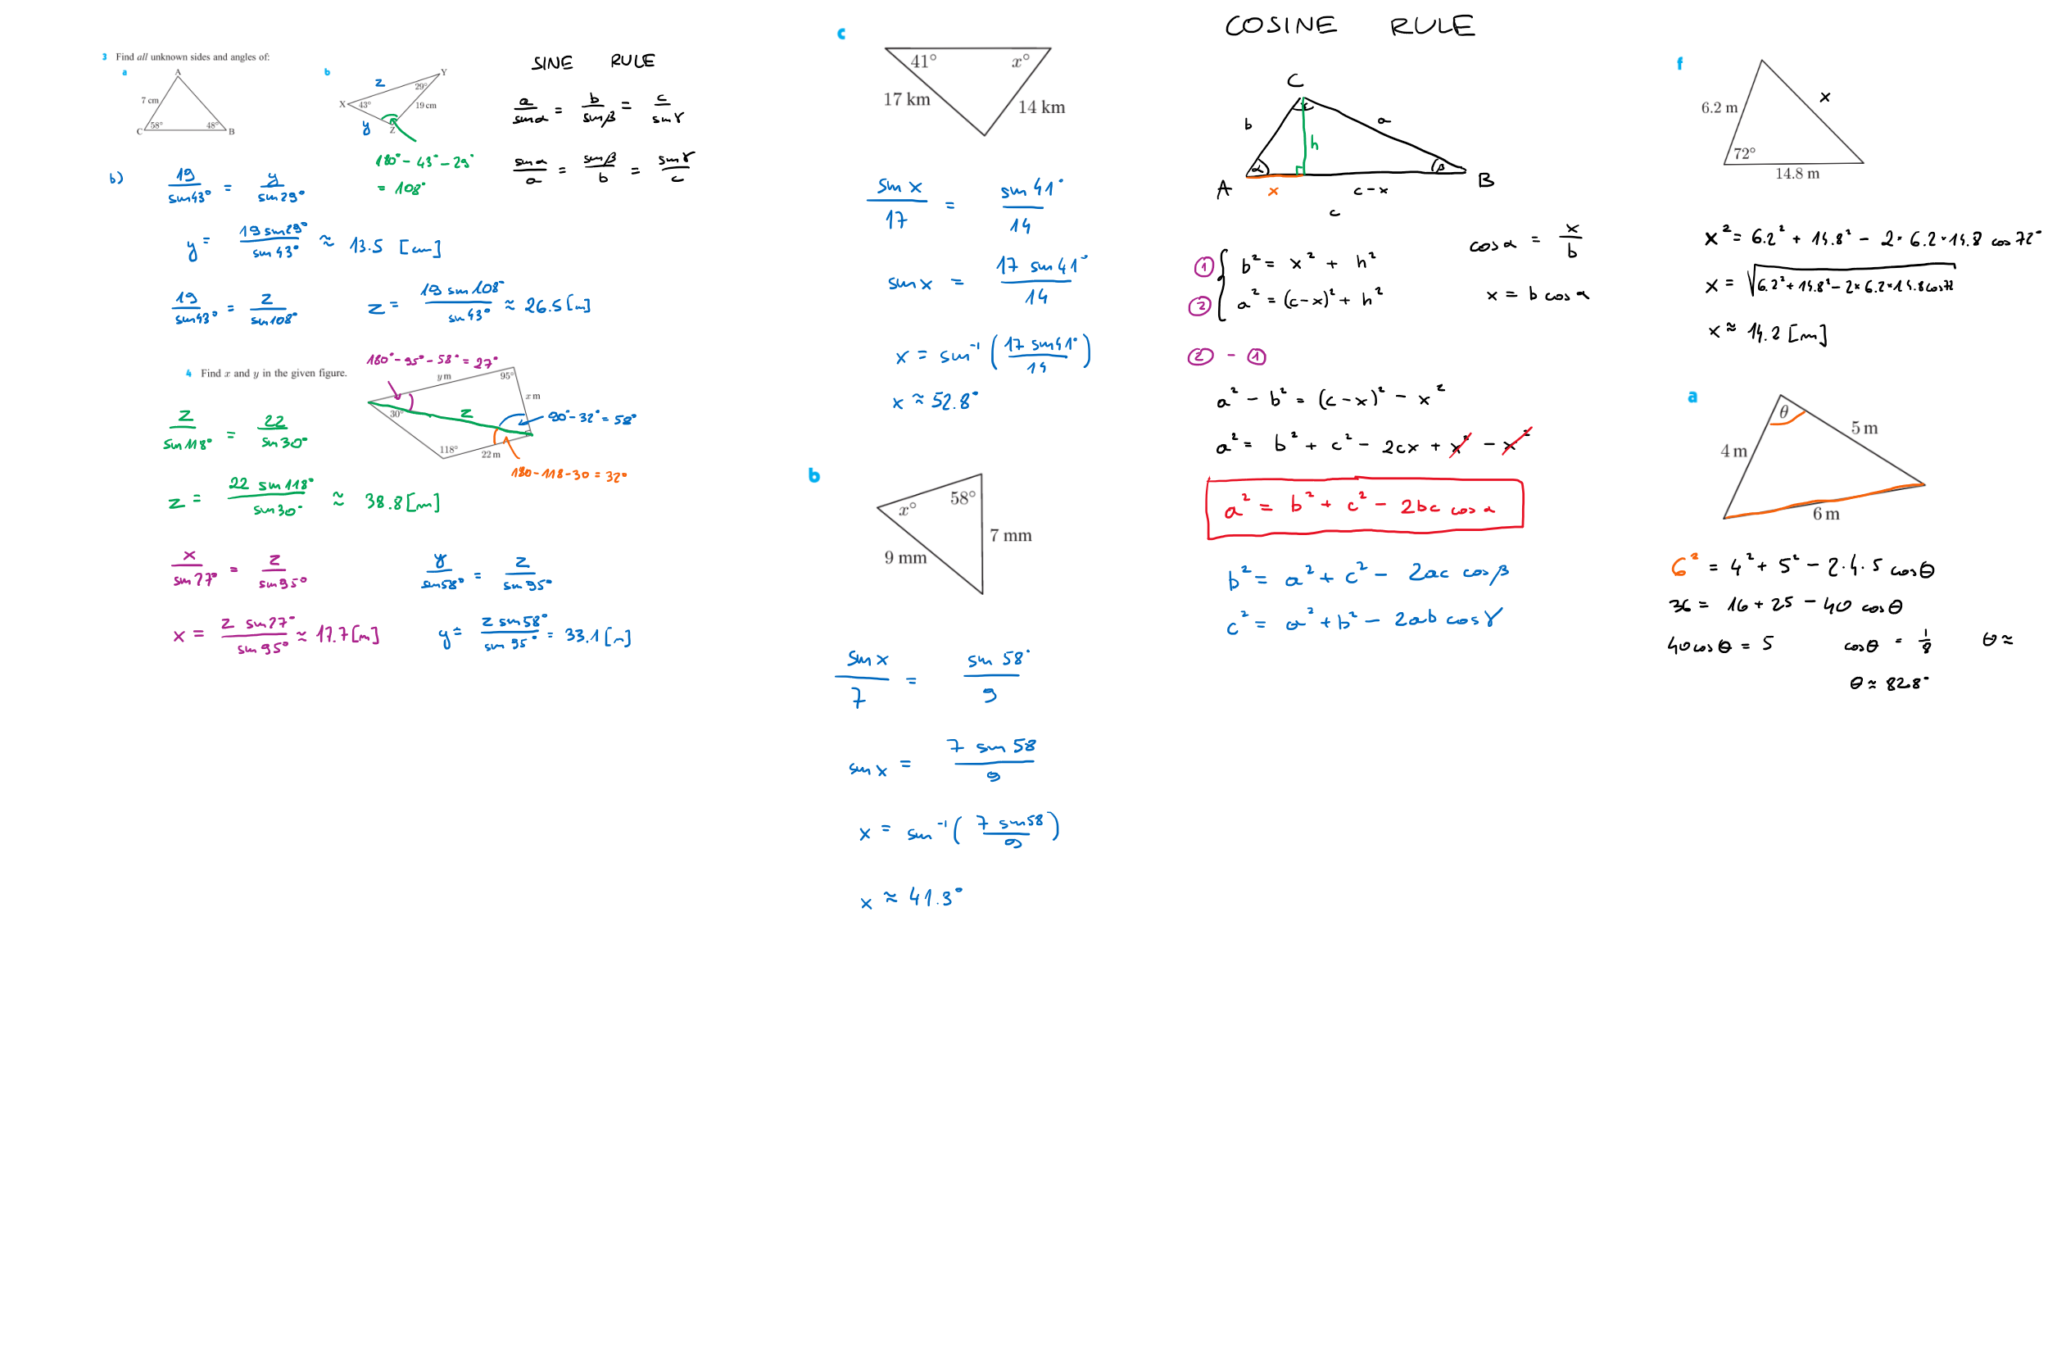 3 Find all unknown sides and angles of:
a
A
7 cm
58°
48°
C
B
b
X
Y
Z
z
y
43°
29°
19 cm
180° - 43° - 29°
= 108°
SINE RULE
a/sinα = b/sinβ = c/sinγ
sinα/a = sinβ/b = sinγ/c
b)
19/sin43° = y/sin29°
y = 19 sin29°/sin43° ≈ 13.5 [cm]
19/sin43° = z/sin108° z = 19 sin108°/sin43° ≈ 26.5 [m]
180° - 95° - 58° = 27°
4 Find x and y in the given figure.
y m
95°
x m
30°
z
90° - 32° = 58°
118°
22 m
180 - 118 - 30 = 32°
z/sin118° = 22/sin30°
z = 22 sin118°/sin30° ≈ 38.8 [m]
x/sin27° = z/sin95° y/sin58° = z/sin95°
x = z sin27°/sin95° ≈ 17.7 [m] y = z sin58°/sin95° = 33.1 [m]
c
41°
x°
17 km
14 km
sin x/17 = sin 41°/14
sin x = 17 sin 41°/14
x = sin⁻¹(17 sin41°/14)
x ≈ 52.8°
b
x°
58°
7 mm
9 mm
sin x/7 = sin 58°/9
sin x = 7 sin 58/9
x = sin⁻¹(7 sin58/9)
x ≈ 41.3°
COSINE RULE
C
b
a
h
α
β
A
x
c-x
B
c
① b² = x² + h²
② a² = (c-x)² + h²
cosα = x/b
x = b cosα
② - ①
a² - b² = (c-x)² - x²
a² = b² + c² - 2cx + x² - x²
a² = b² + c² - 2bc cosα
b² = a² + c² - 2ac cosβ
c² = a² + b² - 2ab cosγ
f
6.2 m
x
72°
14.8 m
x² = 6.2² + 14.8² - 2 · 6.2 · 14.8 cos 72°
x = √6.2² + 14.8² - 2 · 6.2 · 14.8 cos72
x ≈ 14.2 [m]
a
θ
5 m
4 m
6 m
6² = 4² + 5² - 2·4·5 cosθ
36 = 16 + 25 - 40 cosθ
40 cosθ = 5 cosθ = 1/8 θ ≈
θ ≈ 82.8°